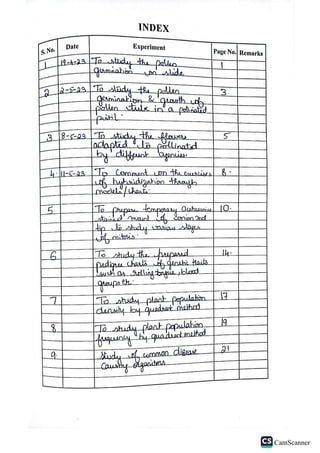 INDEX
S. No. Date Experiment Page No. Remarks
1 19-4-23 To study the pollen 1
germiation on slide
2 2-5-23 To study the pollen 3
germination & growth of
pollen tube in a pollinated
pistil.
3 8-5-23 To study the flower 5
adapted to pollinated
by different agencies
4 11-5-23 To Comment on the exercises 8.
of hybridization through
models / charts.
5 To prepare temporary 10.
stained mount of onion root
tip to study various stages
of mitosis.
6 To study the prepared 14.
pedigree charts of genetic traits
such as rolling tongue, blood
groups etc.
7 To study plant population 17
density by quadrat method
8 To study plant population 19
frequency by quadrat method
9. Study of common disease 21
Causing
CS CamScanner